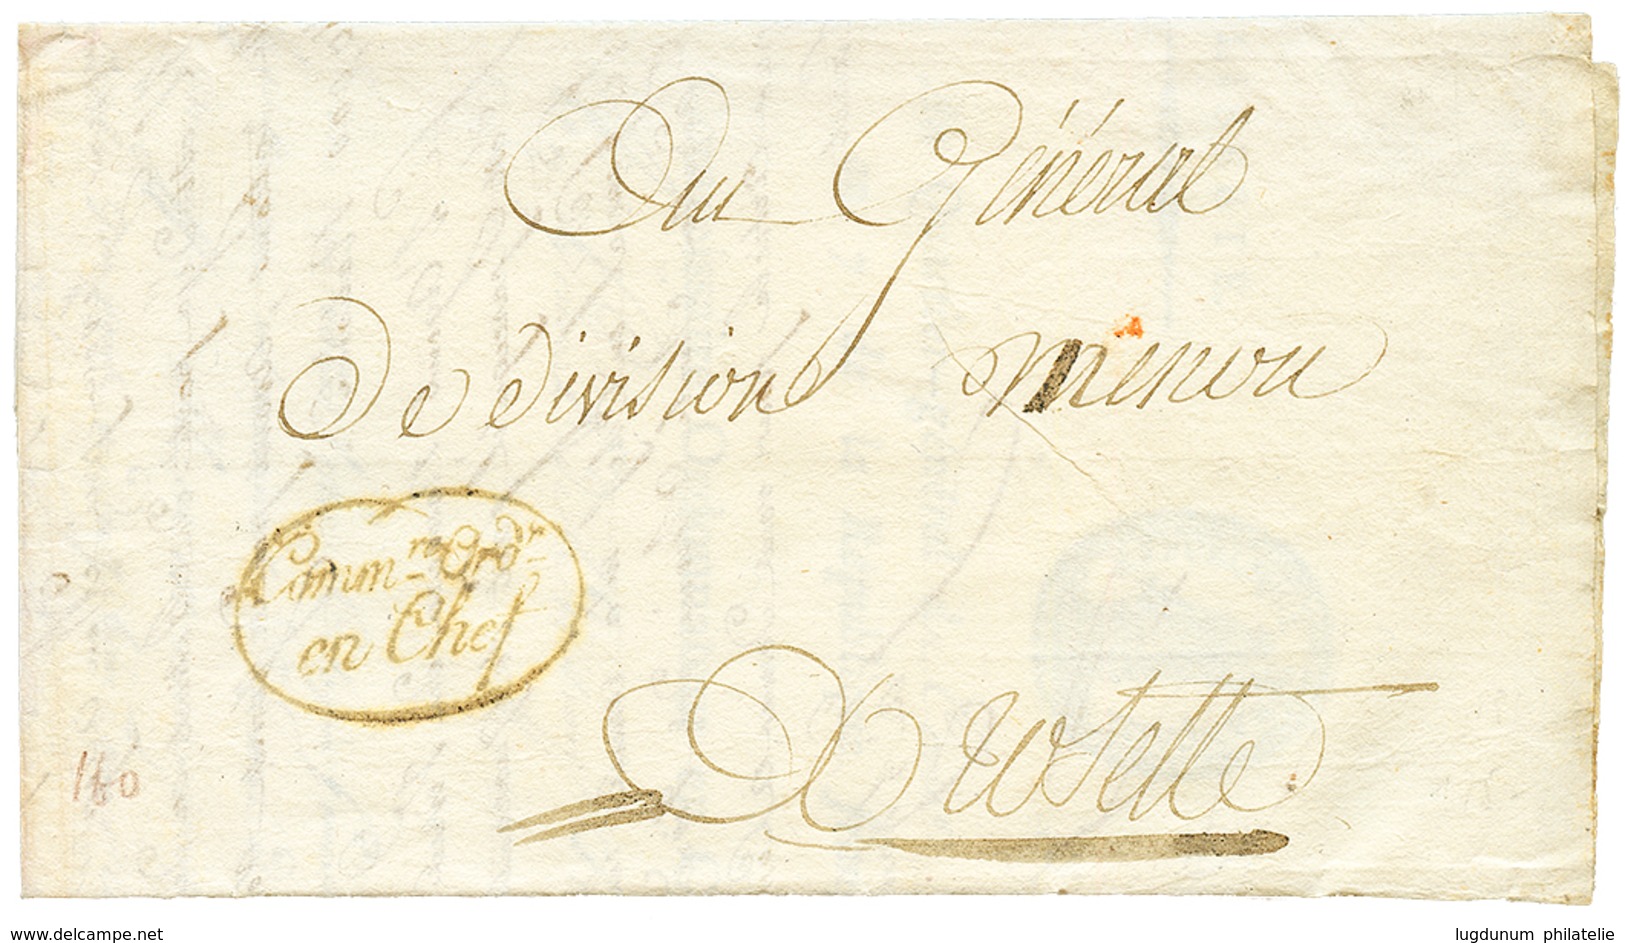 Au Général
De division menou
Comm.re Ord.r
en Chef
A rosette
160
delcampe.net
lugdunum philatelie